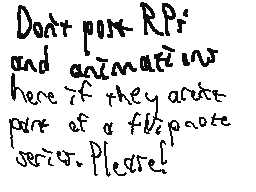 Don't post RPs
and animations
here if they arent
part of a flipnote
series. Please!